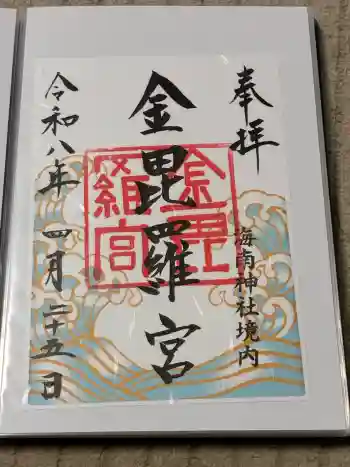 奉拝
海南神社境内
金毘羅宮
金毘羅宮
令和八年四月二十五日